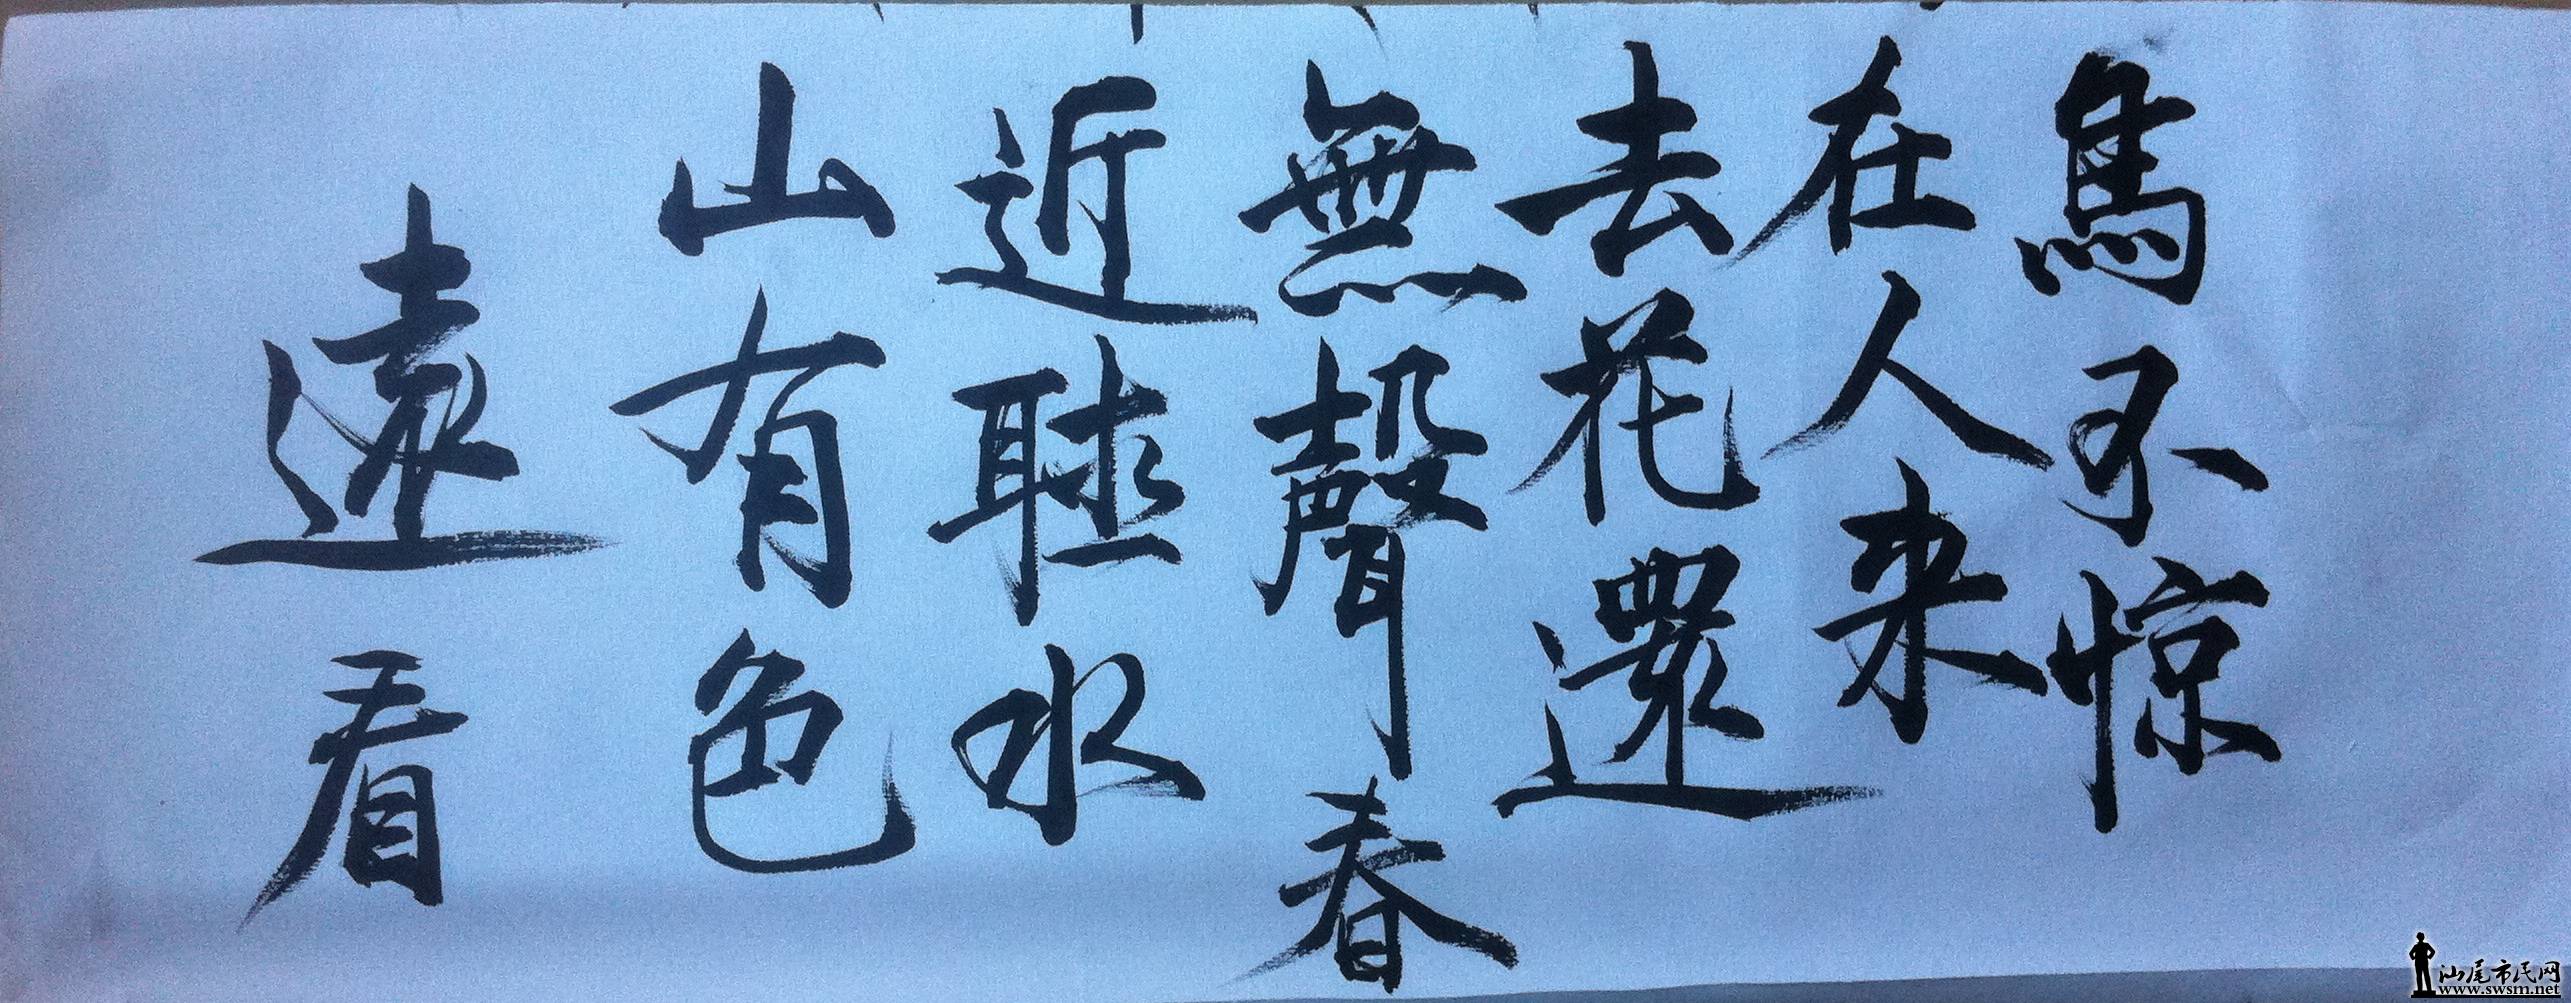 遠看
山有色
近聽水
無聲春
去花還
在人来
鳥不惊
汕尾市民网
www.swsm.net